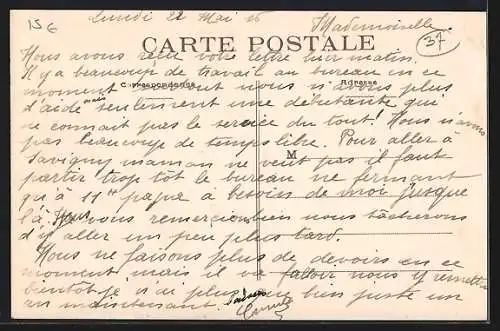 15 €
Lundi 22 Mai 16
Mademoiselle
37
CARTE POSTALE
Correspondance
Adresse
M
Nous avons reçu votre lettre hier matin.
Il y a beaucoup de travail au bureau en ce
moment surtout nous n'avons plus
d'aide mais seulement une débutante qui
ne connait pas le service du tout! Nous n'avons
pas beaucoup de temps libre. Pour aller à
Savigny maman ne veut pas il faut
partir trop tôt le bureau ne fermant
qu'à 11H papa à besoin de moi jusque
là. Nous vous remercions bien nous tâcherons
d'y aller un peu plus tard.
Nous ne faisons plus de devoirs en ce
moment mais il va falloir nous y remettre
bientôt je n'ai plus bien juste un
an maintenant.